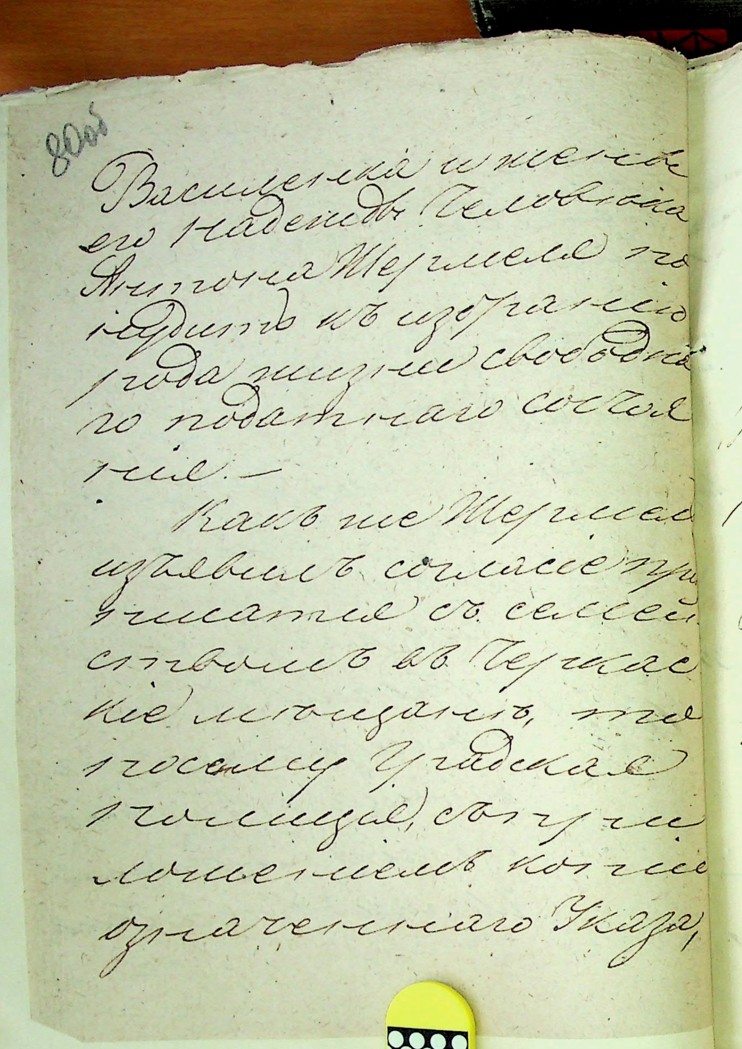 80об
Василенка и жены
его Надежды Человѣка
Антона Шермеля по
нудить къ избранію
рода жизни свободна
го податнаго состоя
нія. —
Какъ же Шермель
изъявилъ согласіе при
писатся съ семей
ствомъ въ Черкас
кіе мѣщане, то
посему Градская
полиція, съ при
ложеніемъ копіи
означеннаго Указа,